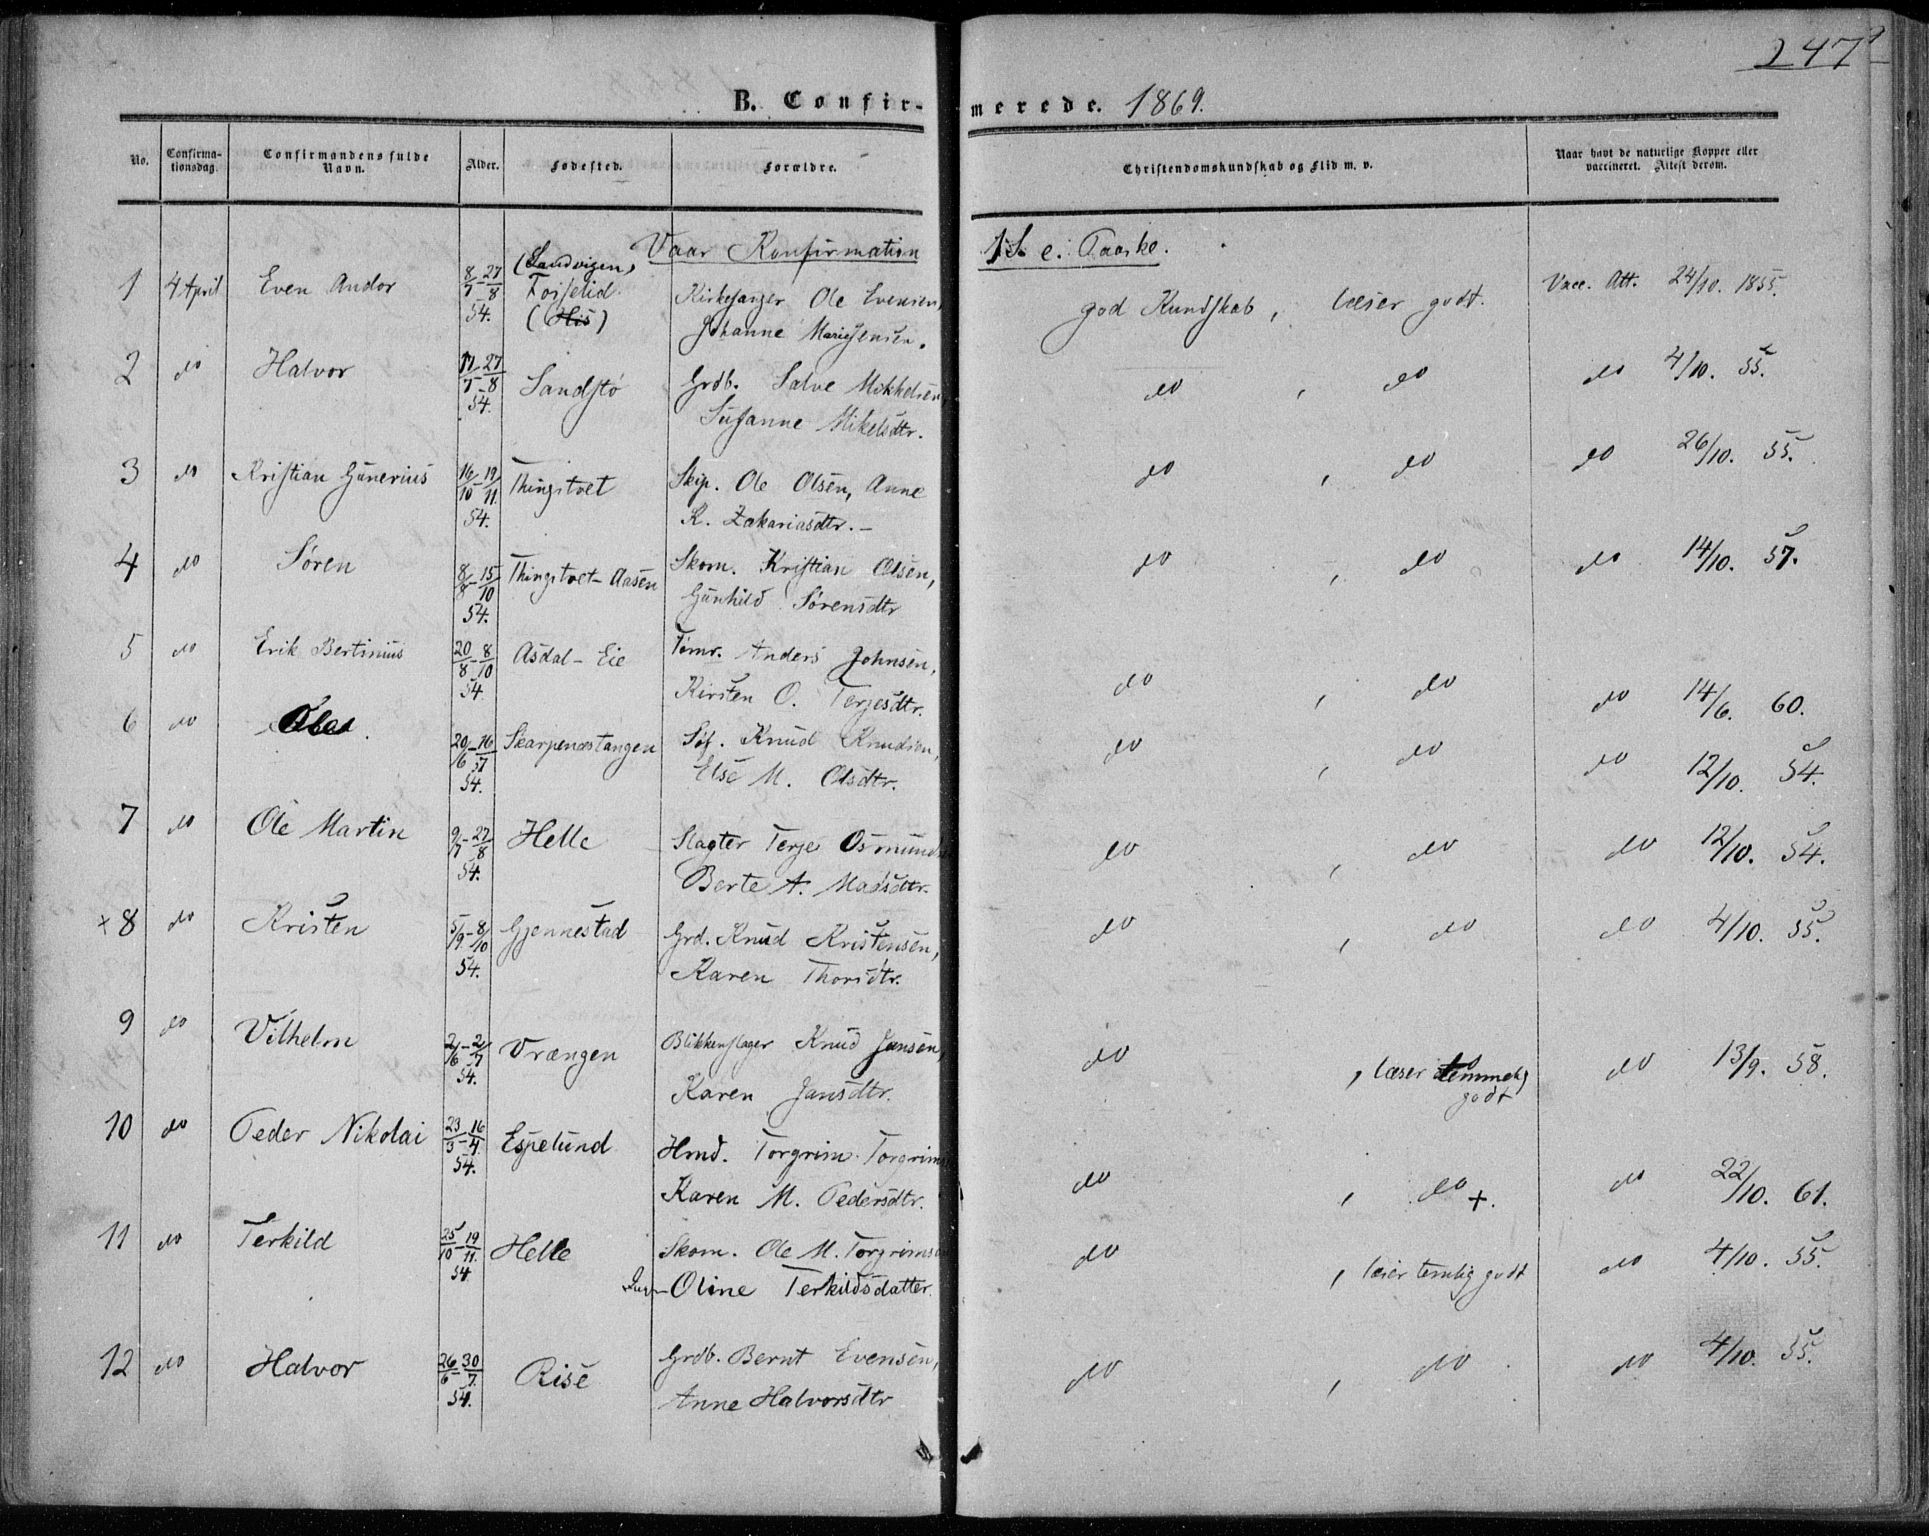 247
B. Confirmerede. 1869.
No. Confirmationsdag. Confirmandens fulde Navn. Alder. Fødested. Forældre. Christendomskundskab og Flid m. v. Naar havt de naturlige Kopper eller vaccineret. Attest derom.
Vaar Konfirmation 1 S. e. Paaske.
1 4 April Even Andor 8/7 - 27/8 54. (Sandvigen) Fosselid (His) Kirkesanger Ole Evensen, god Kundskab, læser godt. Vacc. Att. 24/10. 1855.
Johanne Marie Jensen.
2 do Halvor 17/7 - 27/8 54. Sandstø Grdb. Salve Mikkelsen do , do do 4/10. 55.
Susanne Mikelsdtr.
3 do Kristian Gunerius 16/10 - 19/11. 54. Thingstvet Skip. Ole Olsen, Anne do , do do 26/10. 55.
K. Zakariasdtr. -
4 do Søren 8/8 - 15/10 54. Thingstvet-Aasen Skom. Kristian Olsen, do , do do 14/10. 57.
Gunhild Sørensdtr
5 do Erik Bertinius 20/8 - 8/10 54. Asdal - Eie Tømr. Anders Johnsen, do , do do 14/6. 60.
Kirsten O. Terjesdtr.
6 do 20/6 - 16/7 54. Skarpenæstangen Søf. Knud Knudsen, do , do do 12/10. 54.
Else M. Olsdtr.
7 do Ole Martin 9/7 - 27/8 54. Helle Slagter Terje Osmunds do , do do 12/10. 54.
Berte A. Madsdtr.
x 8 do Kristen 5/9 - 8/10 54. Gjennestad Grd. Knud Kristensen, do , do do 4/10. 55.
Karen Thorsdtr.
9 do Vilhelm 2/6 - 2/7 54. Vrængen Blikkenslager Knud Jansen, do , læser temmelig godt do 13/9. 58.
Karen Jansdtr.
10 do Peder Nikolai 23/3 - 16/4. 54. Espelund Hmd. Torgrim Torgrims do , do +. do 22/10. 61.
Karen M. Pedersdtr.
11 do Terkild 25/10 - 19/11. 54 Helle Skom. Ole M. Torgrims do , læser temlig godt do 4/10. 55.
Oline Terkildsdatter.
12 do Halvor 26/6 - 30/7. 54. Rise Grdb. Bernt Evensen, do , do do 4/10. 55.
Anne Halvorsdtr